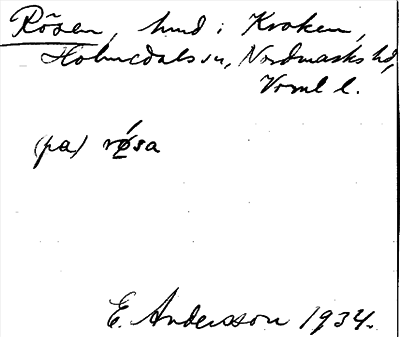 Rösen, hmd i Kroken,
Holmedals sn, Nordmarks hd,
Vrml l.
(pa) røsa
E. Andersson 1934.